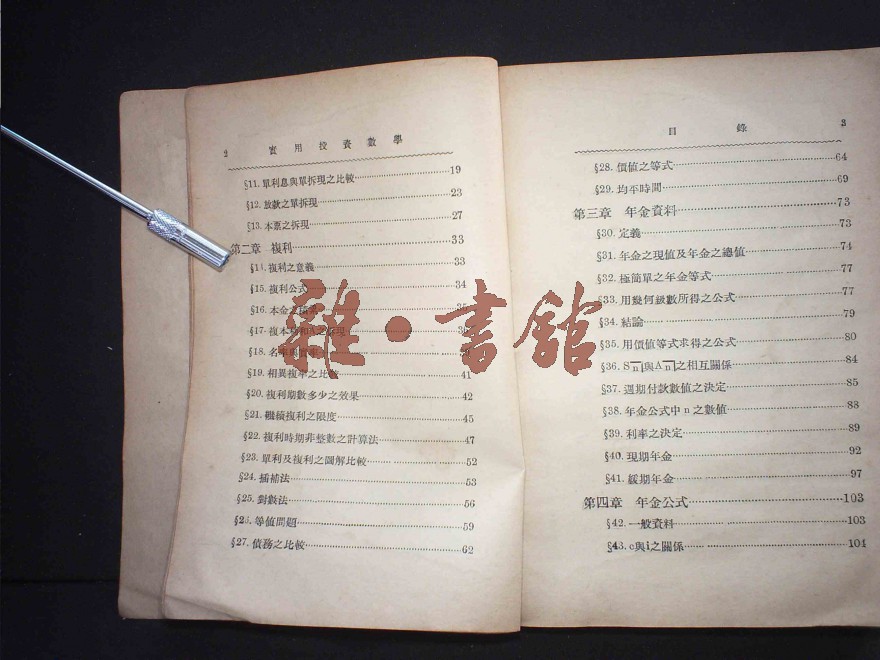 2 實用投資數學
§11. 單利息與單拆現之比較 19
§12. 放款之單拆現 23
§13. 本票之拆現 27
第二章 複利 33
§14. 複利之意義 33
§15. 複利公式 34
§16. 本金之
§17. 複本
§18. 名率與
§19. 相異複率之比較 41
§20. 複利期數多少之效果 42
§21. 繼續複利之限度 45
§22. 複利時期非整數之計算法 47
§23. 單利及複利之圖解比較 52
§24. 插補法 53
§25. 對數法 56
§26. 等值問題 59
§27. 債務之比較 62
目錄 3
§28. 價值之等式 64
§29. 均平時間 69
第三章 年金資料 73
§30. 定義 73
§31. 年金之現值及年金之總值 74
§32. 極簡單之年金等式 77
§33. 用幾何級數所得之公式 77
§34. 結論 79
§35. 用價值等式求得之公式 80
§36. Sn|與An|之相互關係 84
§37. 週期付款數值之決定 85
§38. 年金公式中n之數值 88
§39. 利率之決定 89
§40. 現期年金 92
§41. 緩期年金 97
第四章 年金公式 103
§42. 一般資料 103
§43. c與i之關係 104
雜·書館